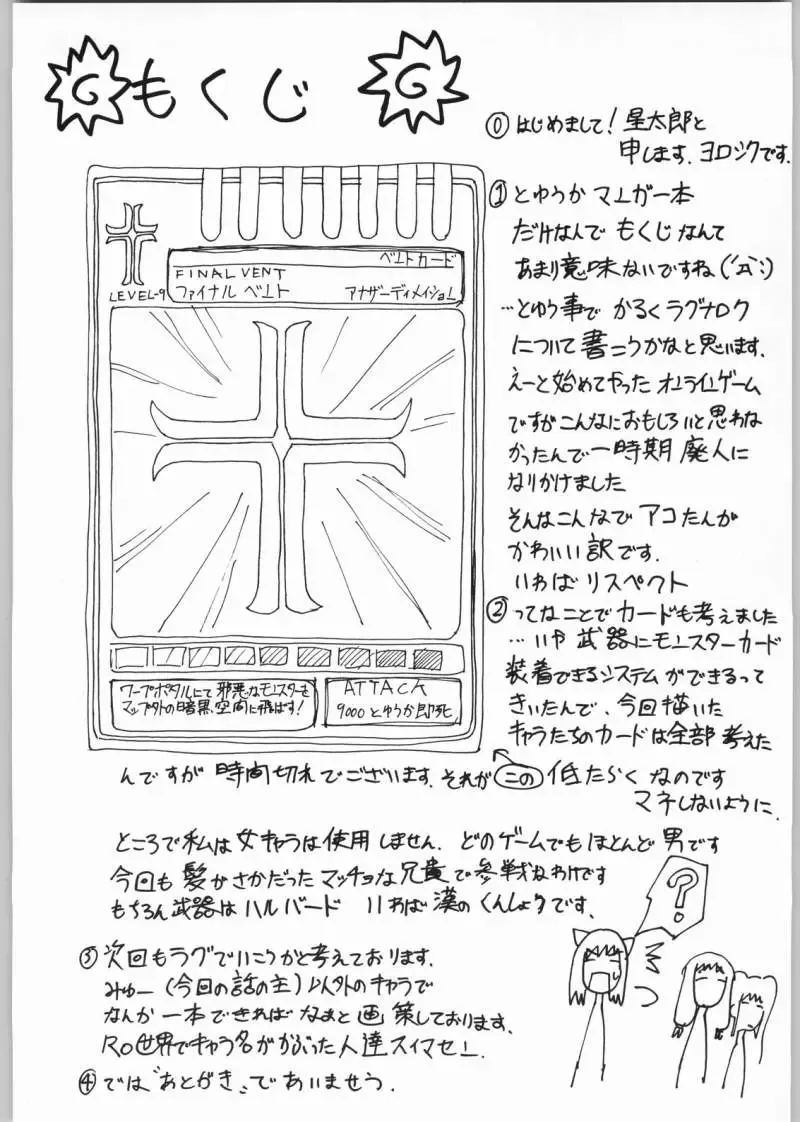 G もくじ G
⓪はじめまして!星太郎と
申します、ヨロシクです。
①とゆうかマンガ一本
だけなんで もくじなんて
あまり意味ないですね(´д`;)
…とゆう事で かるくラグナロク
について書こうかなと思います。
えーと始めてやったオンラインゲーム
ですがこんなにおもしろいと思わな
かったんで一時期廃人に
なりかけました
そんなこんなで アコたんが
かわいい訳です.
いわば リスペクト
②ってなことでカードも考えました
…いや 武器にモンスターカード
装着できるシステムができるって
きいたんで、今回描いた
キャラたちのカードは全部考えた
んですが時間切れでございます.それが この 低たらく なのです
マネしないように.
LEVEL-9
ベントカード
FINAL VENT
ファイナル ベント アナザーディメイション
ワープポタルにて邪悪なモンスターを
マップ外の暗黒空間に飛ばす!
ATTACK
9000とゆうか即死.
ところで私は女キャラは使用しません.どのゲームでもほとんど男です
今回も髪がさかだったマッチョな兄貴で参戦なわけです
もちろん武器はハルバード いわば漢のくんしょうです.
③次回もラグでいこうかと考えております.
みゅー(今回の話の主)以外のキャラで
なんか一本できればなぁと画策しております.
RO世界でキャラ名がかぶった人達スイマセン.
④では“あとがき”であいませう.
?